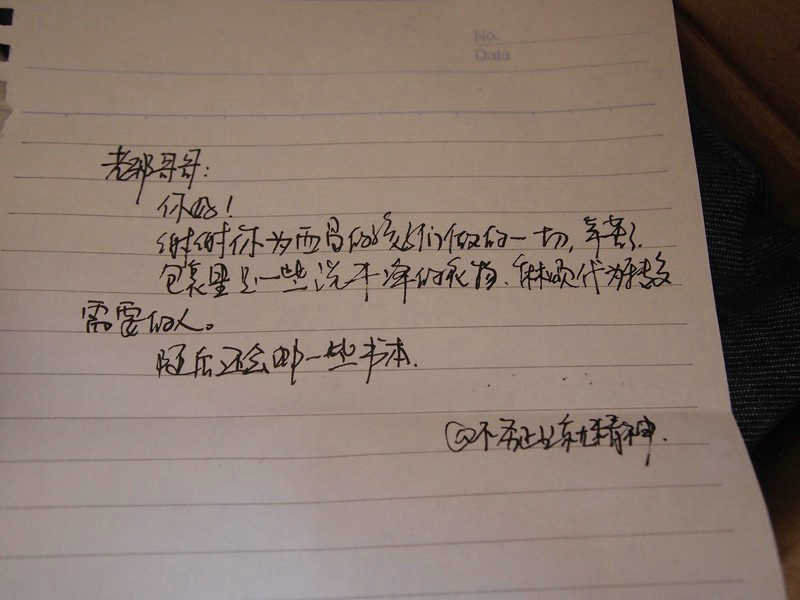 No.
Data
老邪哥哥:
你好!
谢谢你为西昌的孩子们做的一切,辛苦了.
包裹里是一些洗干净的衣物.麻烦代为转交
需要的人。
随后还会邮一些书本.
@不
精神.